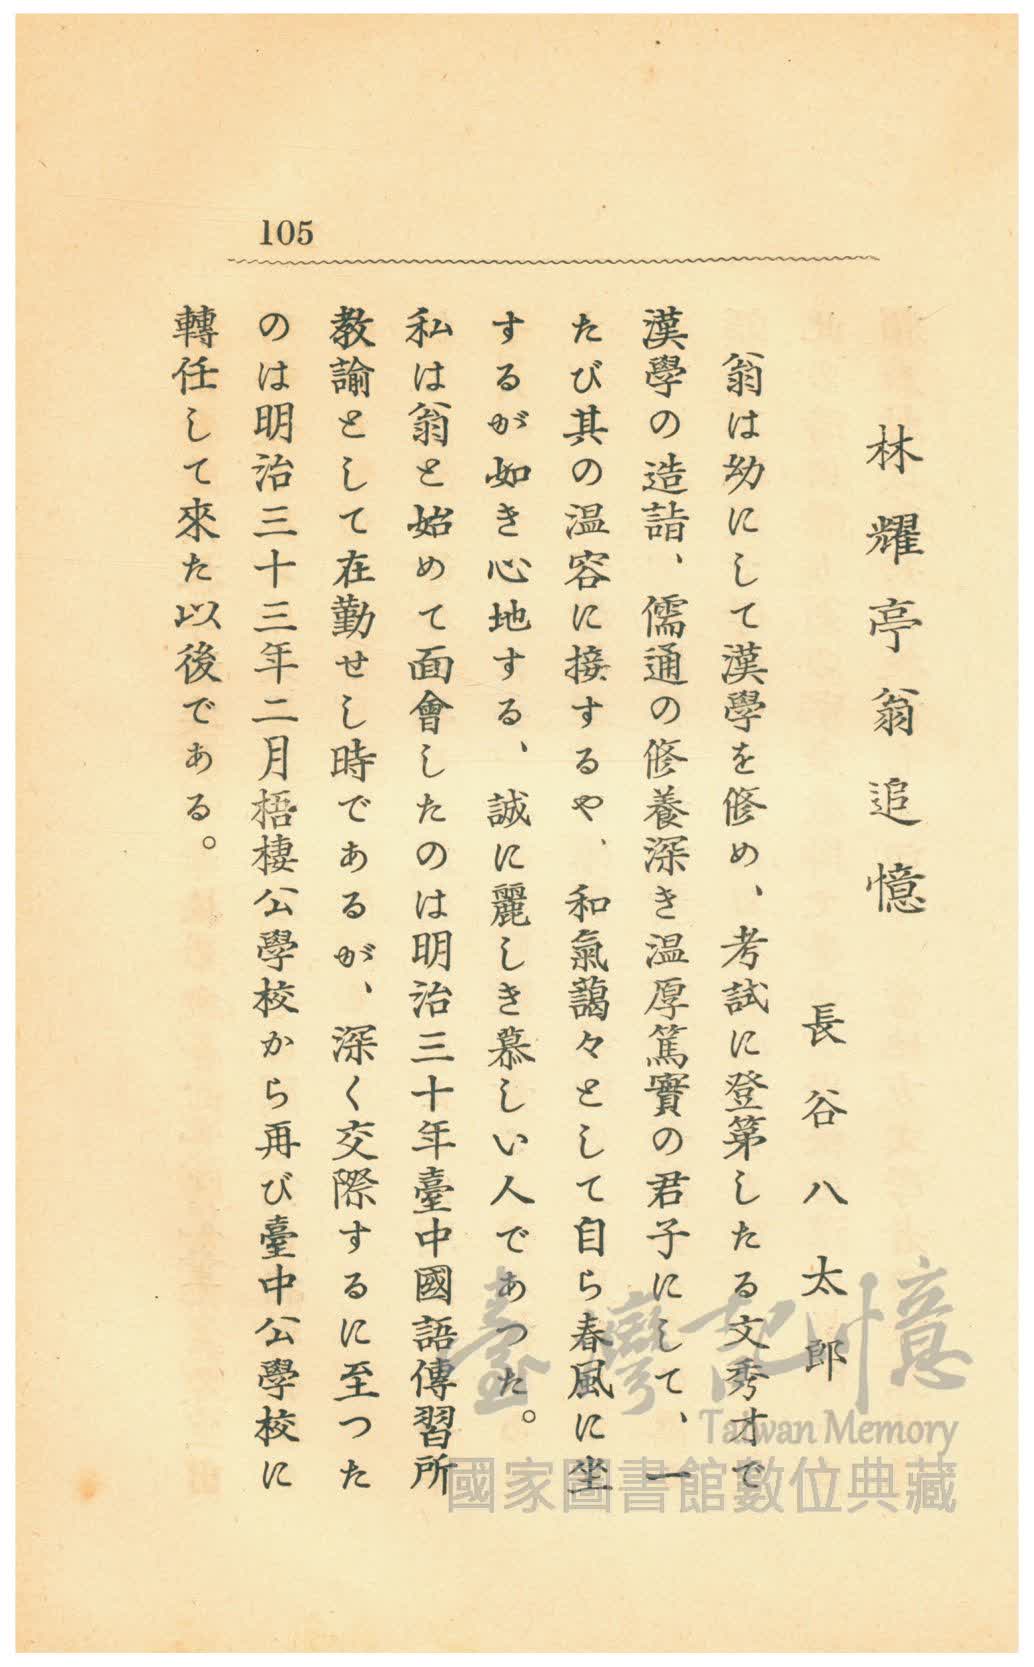 105
林耀亭翁追憶
長谷八太郎
翁は幼にして漢學を修め、考試に登第したる文秀才で
漢學の造詣、儒通の修養深き温厚篤實の君子にして、一
たび其の温容に接するや、和氣藹々として自ら春風に坐
するが如き心地する、誠に麗しき慕しい人であつた。
私は翁と始めて面會したのは明治三十年臺中國語傳習所
教諭として在勤せし時であるが、深く交際するに至つた
のは明治三十三年二月梧棲公學校から再び臺中公學校に
轉任して來た以後である。
臺灣記憶
Taiwan Memory
國家圖書館數位典藏